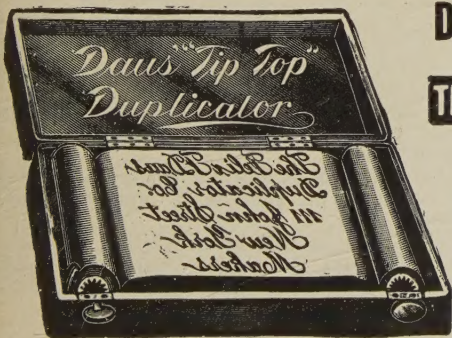 Daus' "Tip Top"
Duplicator
The Felix Daus
Duplicator Co.
111 John Street
New York
Makers
D